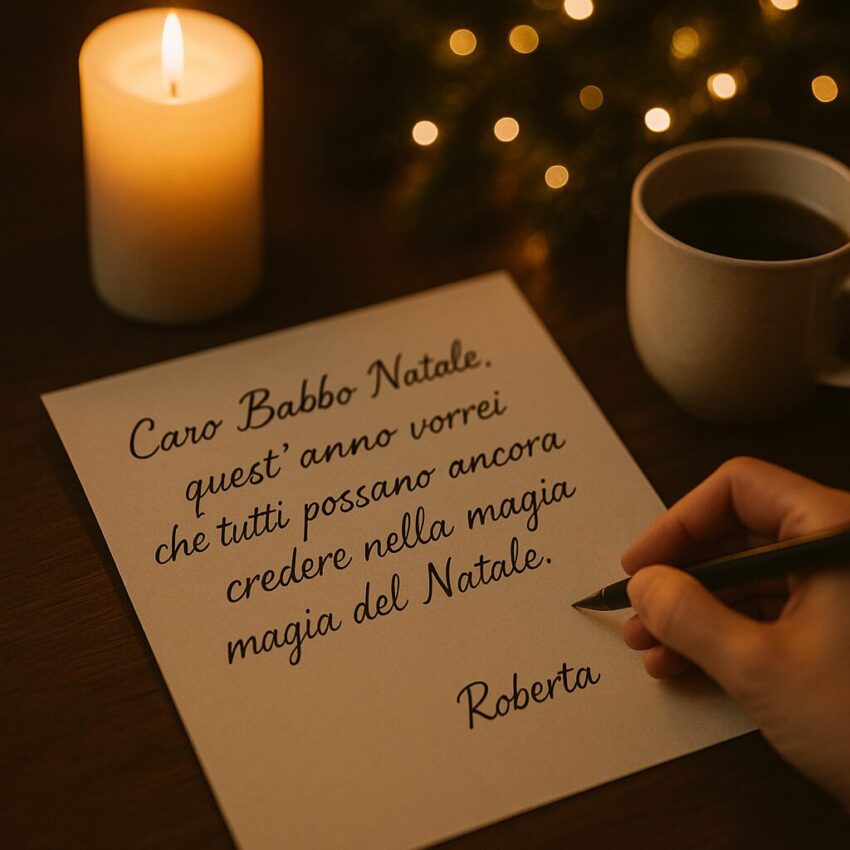 Caro Babbo Natale,
quest' anno vorrei
che tutti possano ancora
credere nella magia
magia del Natale.
Roberta